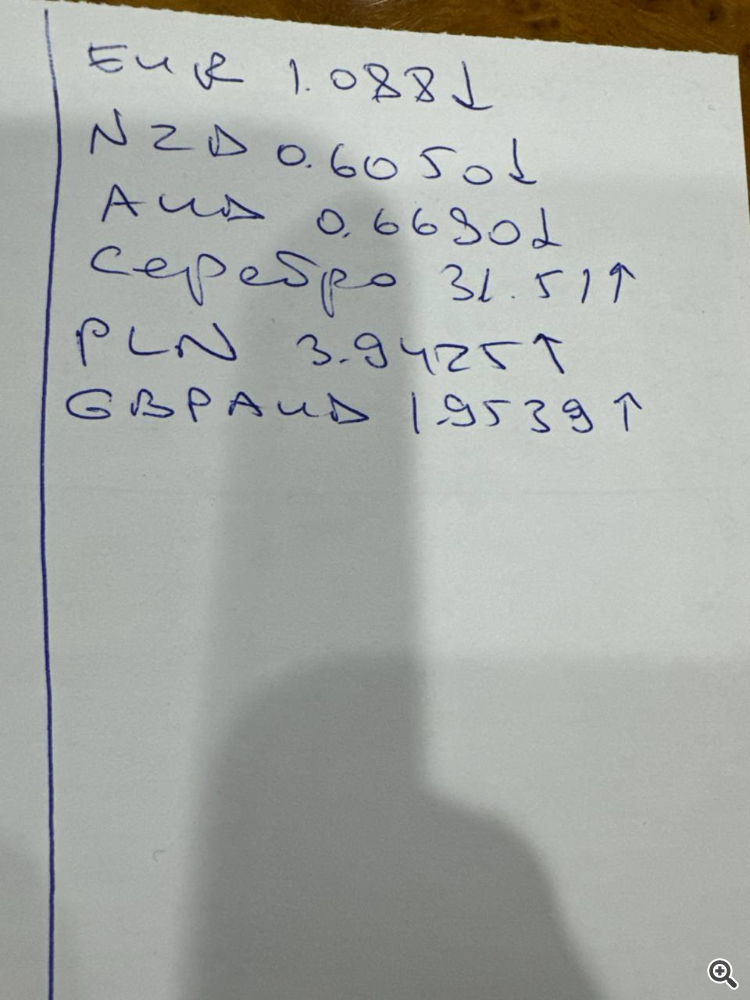 EUR 1.088↓
NZD 0.6050↓
AUD 0.6690↓
Серебро 31.51↑
PLN 3.9425↑
GBPAUD 1.9539↑